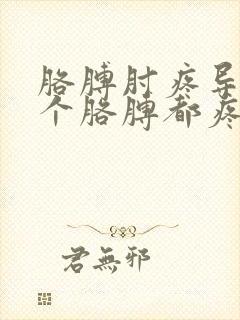 胳膊肘疼导
个胳膊都疼
君無邪